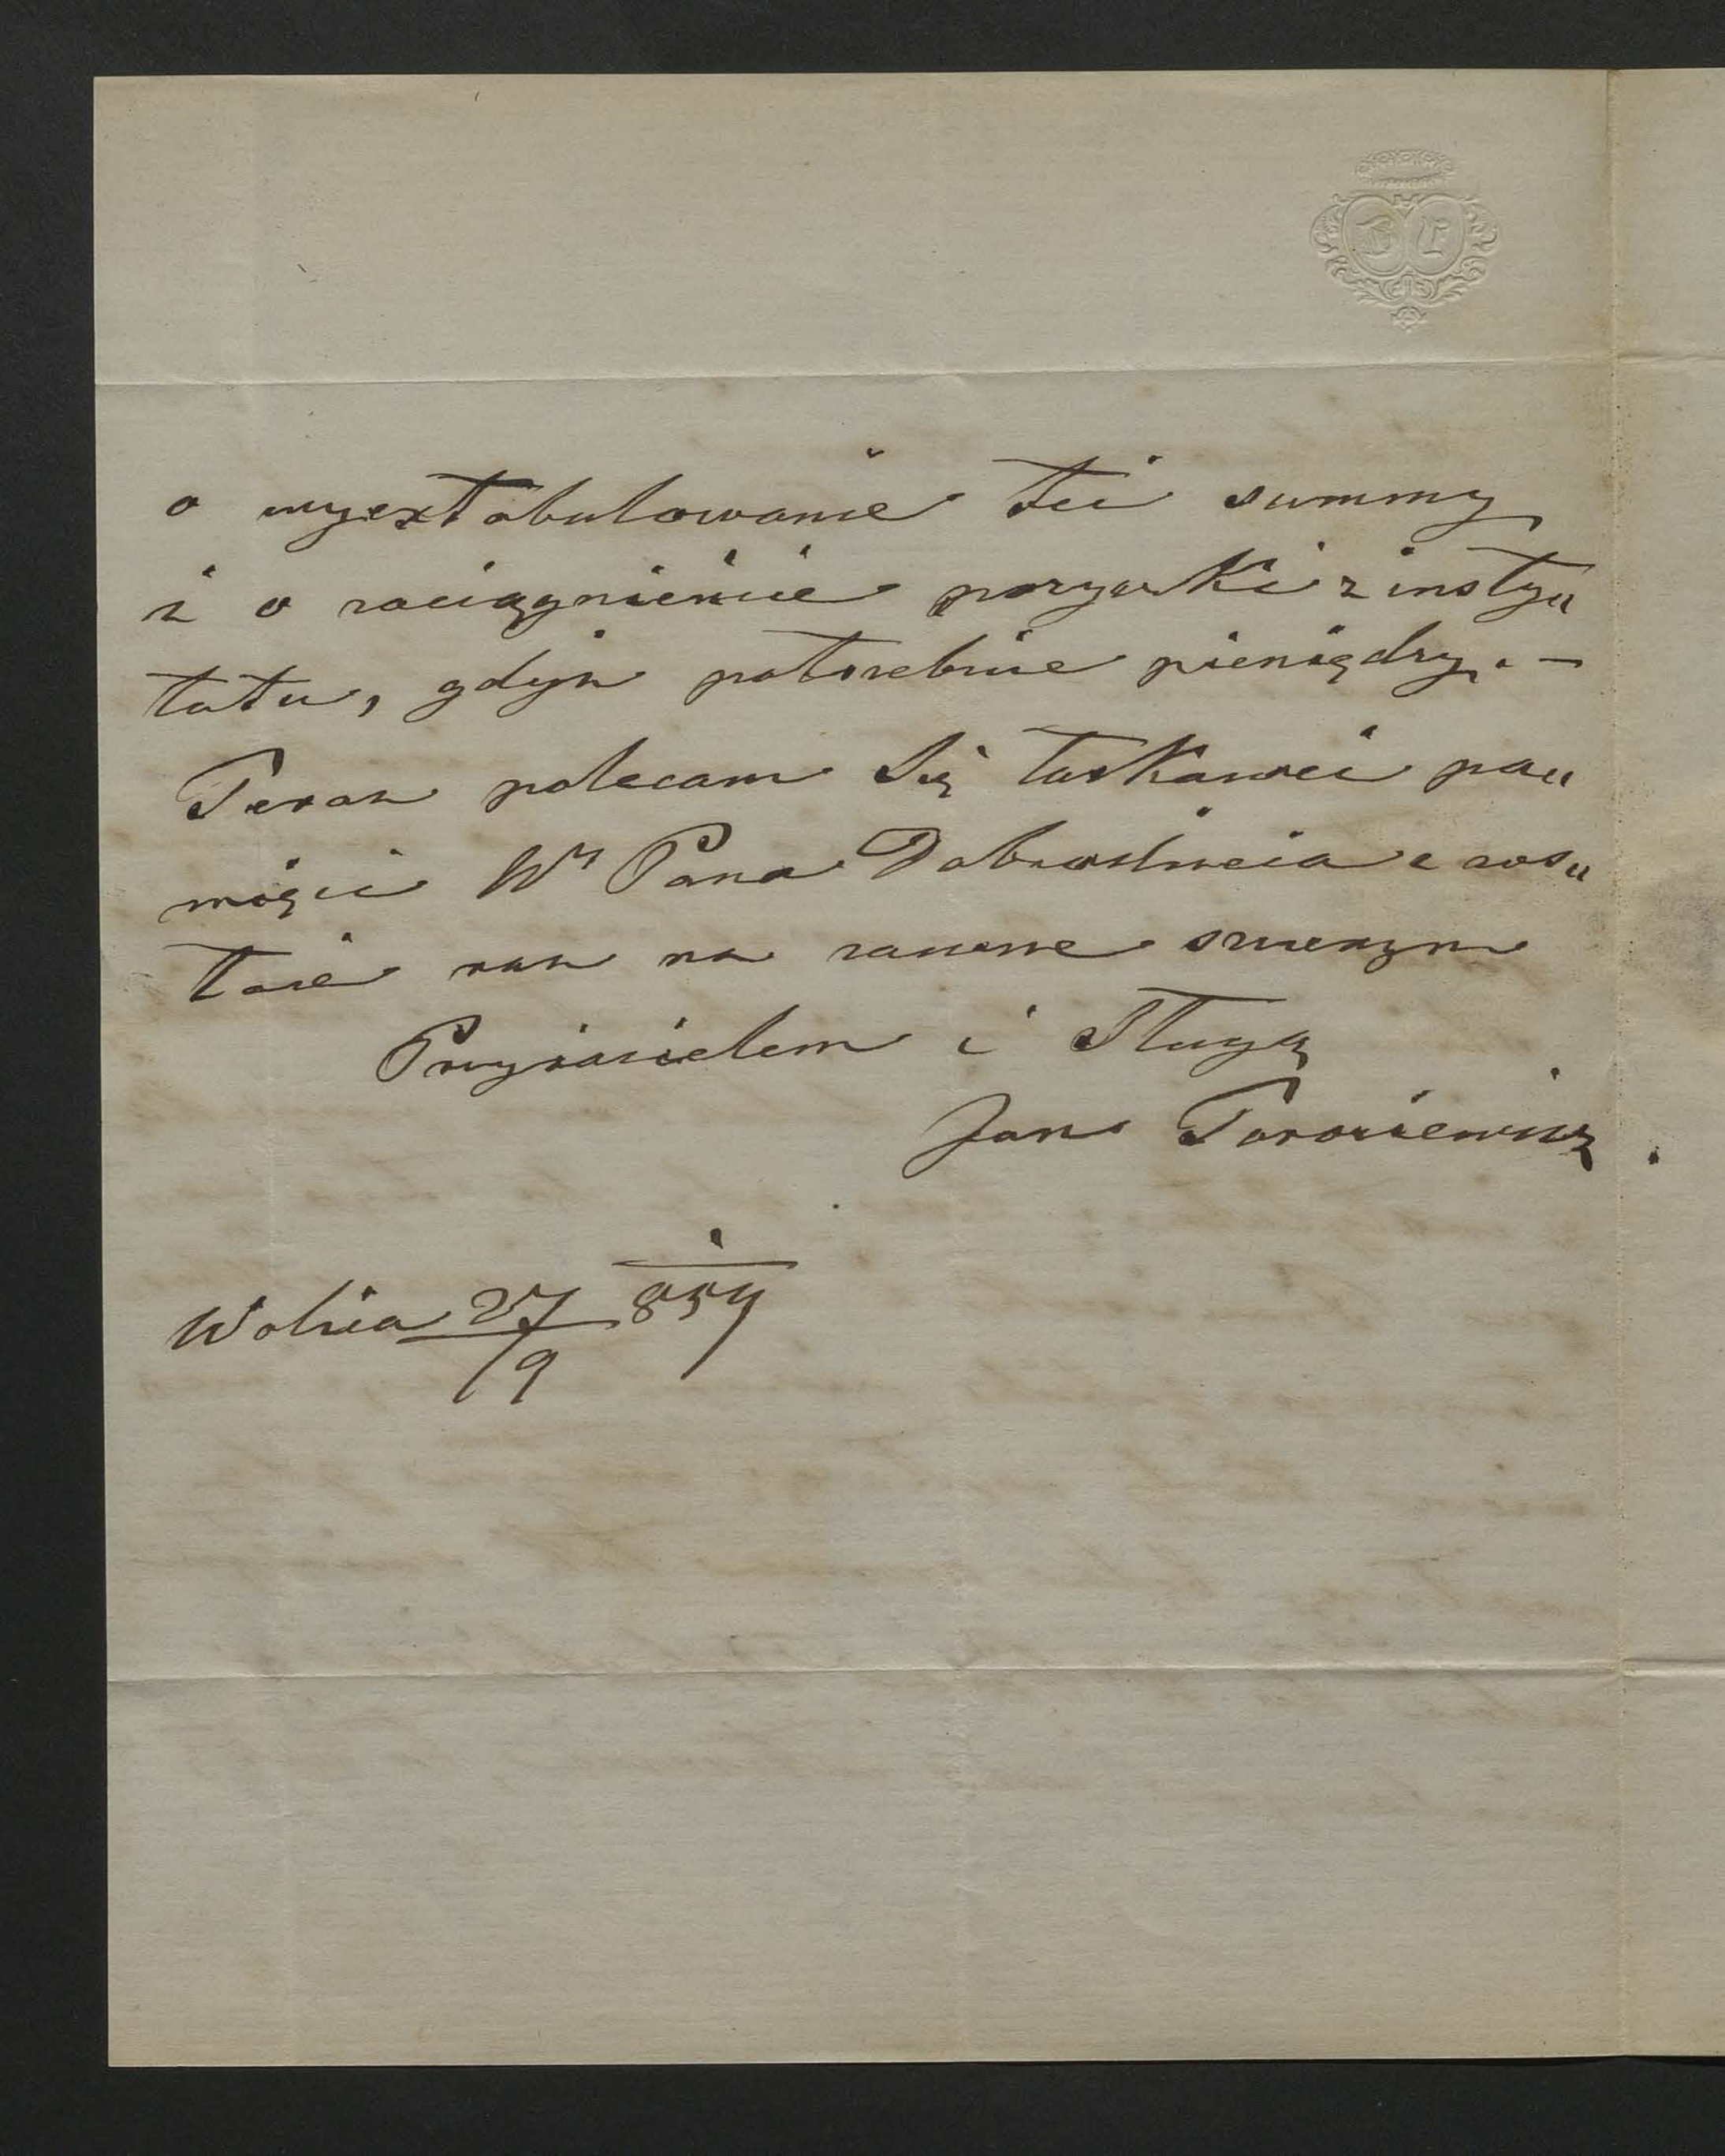 B L
o wyextabulowanie tei summy
i o zaciągnienie pożyczki z insty„
tutu, gdyż potrzebuie pieniędzy. —
Teraz polecam Się łaskawei pa„
mięci Wº Pana Dobrodzieia a zos„
taie raz na zawsze szczerym
Przyiacielem i Sługą
Jan Torosiewicz.
Wolica 27/9 859